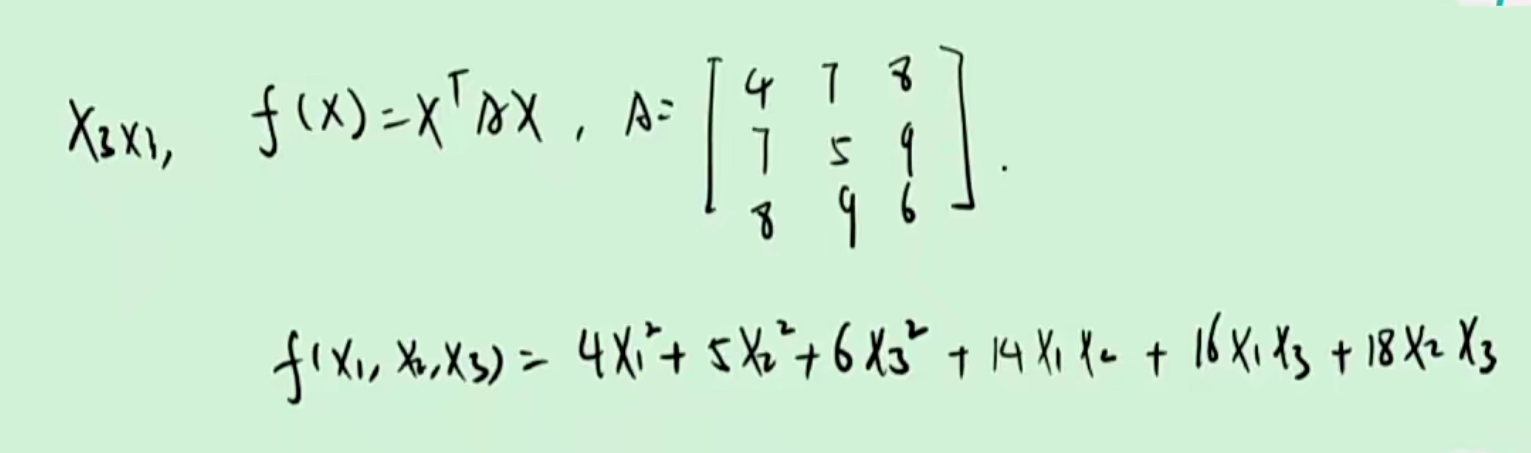 X₃ₓ₁, f(X)=XᵀAX, A=[4 7 8
7 5 9
8 9 6].
f(X₁, X₂, X₃) = 4X₁² + 5X₂² + 6X₃² + 14X₁X₂ + 16X₁X₃ + 18X₂X₃